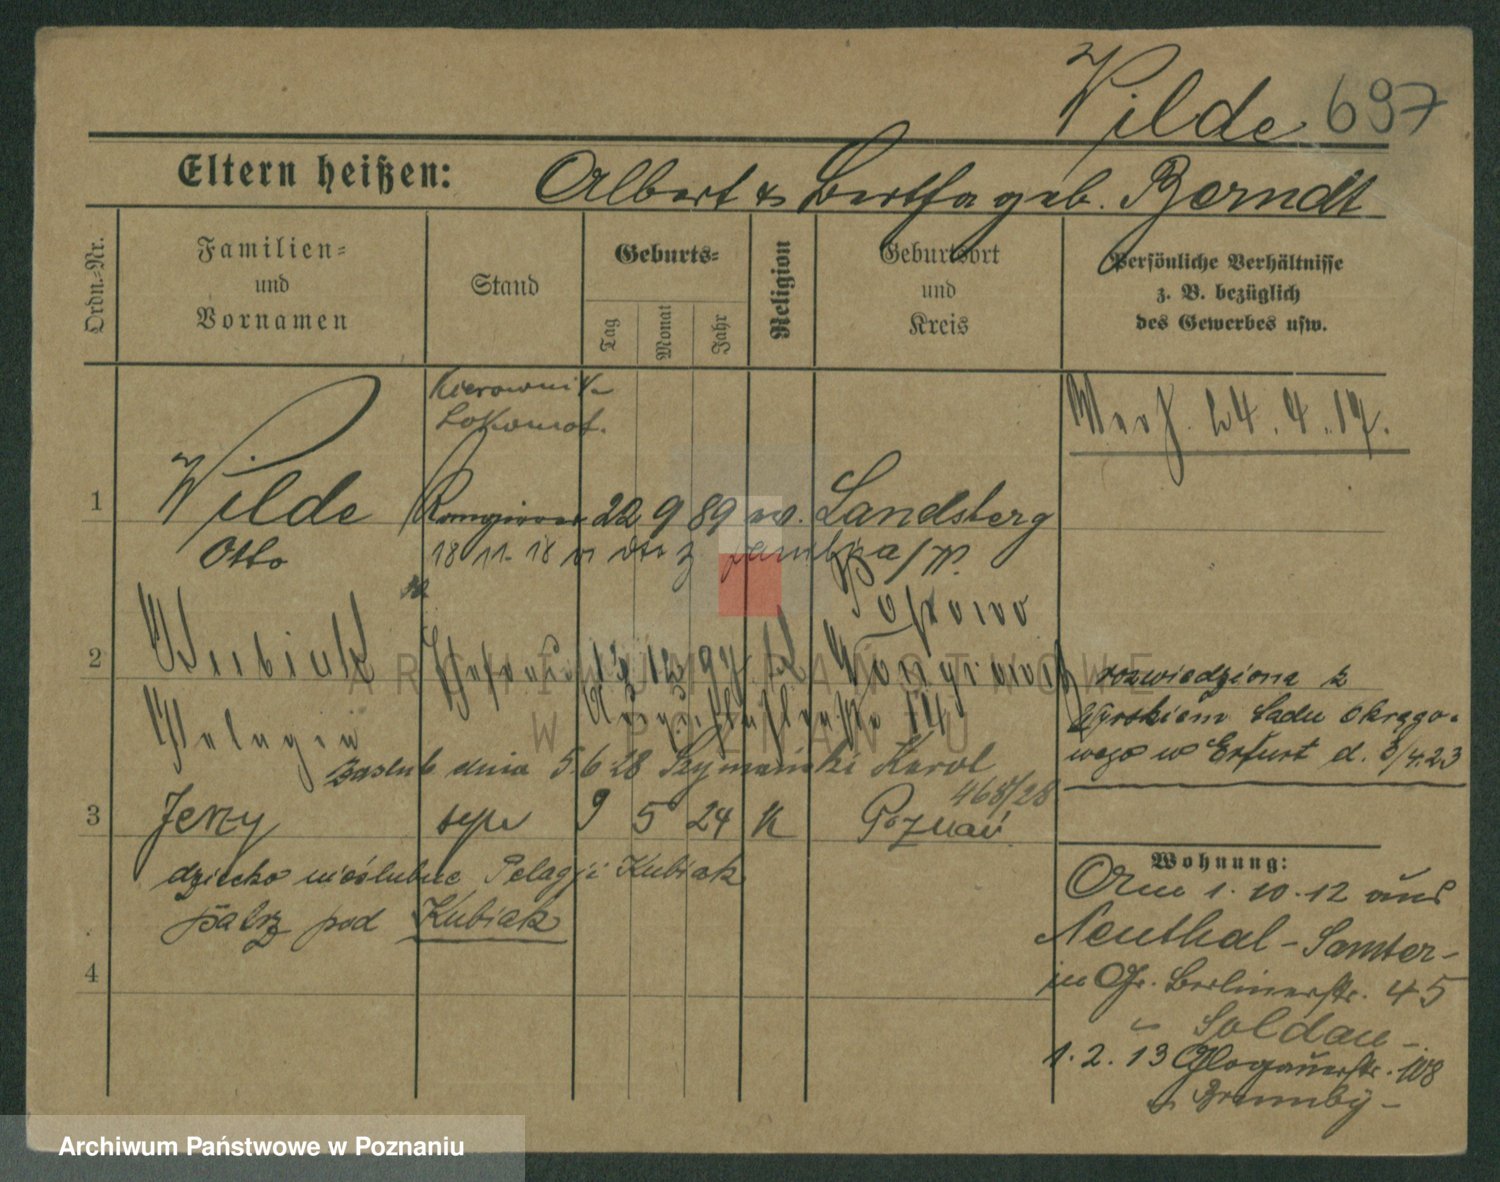 Wilde 697
Eltern heißen: Albert & Bertha geb. Berndt
Ordn.-Nr.
Familien-
und
Vornamen
Stand
Geburts-
Tag
Monat
Jahr
Religion
Geburtsort
und
Kreis
Persönliche Verhältnisse
z. B. bezüglich
des Gewerbes usw.
Kierownik
Lokomot.
Verh. 24.4.17.
1 Wilde 22 9 89 Landsberg
Otto 18 11. 18
2 12 97
rozwiedziona z
Wyrokiem Sadu Okręgo-
wego w Erfurt d. 23
Pelagia
zaslub dnia 5 6 28 Szymański Karol
468/28
3 Jerzy syn 9 5 24 K Poznań
dziecko nieślubne Pelagji Kubiak
patrz pod Kubiak
4
Wohnung:
Am 1. 10. 12 aus
Neuthal - Samter -
in Gr. Berlinerstr. 45
Soldau -
1. 2. 13 Glogauerstr. 108
ARCHIWUM PAŃSTWOWE
W POZNANIU
Archiwum Państwowe w Poznaniu